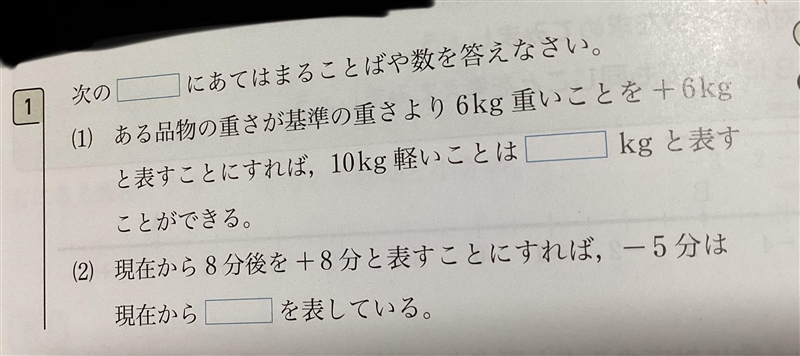 1
次の にあてはまることばや数を答えなさい。
(1) ある品物の重さが基準の重さより 6kg 重いことを +6kg
と表すことにすれば, 10kg 軽いことは kg と表す
ことができる。
(2) 現在から 8 分後を +8 分と表すことにすれば, -5 分は
現在から を表している。